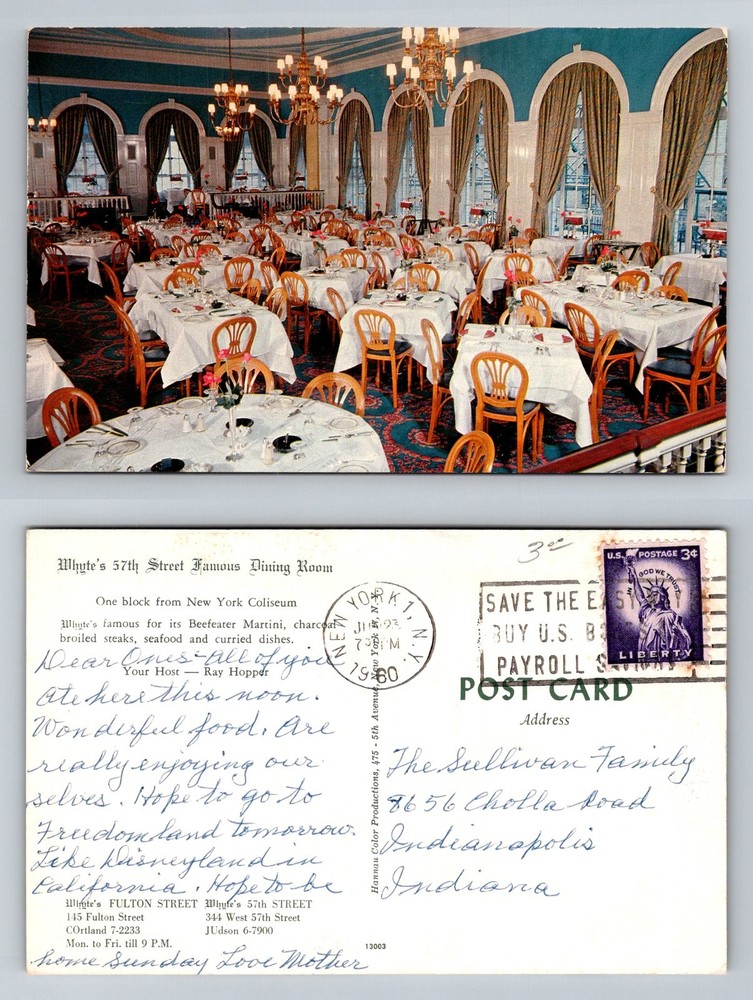 Whyte's 57th Street Famous Dining Room
One block from New York Coliseum
Whyte's famous for its Beefeater Martini, charcoal
broiled steaks, seafood and curried dishes.
Your Host — Ray Hopper
Dear Ones - All of you
ate here this noon.
Wonderful food. Are
really enjoying our
selves. Hope to go to
Freedomland tomorrow.
Like Disneyland in
California. Hope to be
home Sunday Love Mother
Whyte's FULTON STREET
145 Fulton Street
COrtland 7-2233
Mon. to Fri. till 9 P.M.
Whyte's 57th STREET
344 West 57th Street
JUdson 6-7900
Hannau Color Productions, 475 - 5th Avenue, New York 17, N.Y.
13003
300
NEW YORK 1, N.Y.
23
7 PM
1960
SAVE THE
BUY U.S.
PAYROLL
U.S. POSTAGE 3¢
IN GOD WE TRUST
LIBERTY
POST CARD
Address
The Sullivan Family
8656 Cholla Road
Indianapolis
Indiana